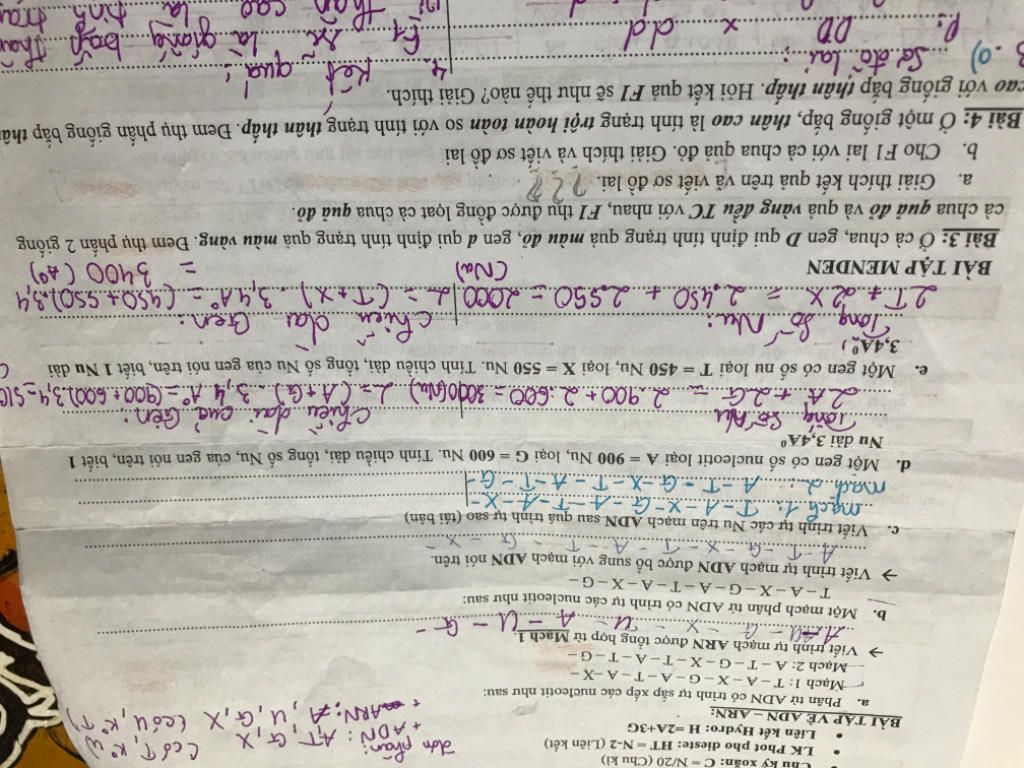 Chu kỳ xoắn: C = N/20 (Chu kì)
• LK Phot pho dieste: HT = N-2 (Liên kết)
• Liên kết Hydro: H =2A+3G
Đơn phân:
+ ADN: A,T,G,X (có T, K° U)
+ ARN: A,U,G,X (có U, K° T)
BÀI TẬP VỀ ADN – ARN:
a. Phân tử ADN có trình tự sắp xếp các nucleotit như sau:
Mạch 1: T – A – X – G – A – T – A – X –
Mạch 2: A – T – G – X – T – A – T – G –
→ Viết trình tự mạch ARN được tổng hợp từ Mạch 1
A – U – G – X – U – A – U – G –
b. Một mạch phân tử ADN có trình tự các nucleotit như sau:
T – A – X – G – A – T – A – X – G –
→ Viết trình tự mạch ADN được bổ sung với mạch ADN nói trên.
A – T – G – X – T – A – T – G – X –
c. Viết trình tự các Nu trên mạch ADN sau quá trình tự sao (tái bản)
mạch 1: T – A – X – G – A – T – A – X –
mạch 2: A – T – G – X – T – A – T – G –
d. Một gen có số nucleotit loại A = 900 Nu, loại G = 600 Nu. Tính chiều dài, tổng số Nu, của gen nói trên, biết 1
Nu dài 3,4A⁰
Tổng số Nu
Chiều dài của Gen:
2A + 2G = 2.900 + 2.600 = 3000(Nu)
L = (A+G). 3,4 A° = (900+600).3,4 = 510
e. Một gen có số nu loại T = 450 Nu, loại X = 550 Nu. Tính chiều dài, tổng số Nu của gen nói trên, biết 1 Nu dài
3,4A⁰
Tổng số Nu:
Chiều dài Gen:
2T + 2X = 2.450 + 2.550 = 2000 (Nu)
L = (T+X). 3,4A° = (450+550).3,4
= 3400 (A°)
BÀI TẬP MENDEN
Bài 3: Ở cà chua, gen D qui định tính trạng quả màu đỏ, gen d qui định tính trạng quả màu vàng. Đem thụ phấn 2 giống
cà chua quả đỏ và quả vàng đều TC với nhau, F1 thu được đồng loạt cà chua quả đỏ.
a. Giải thích kết quả trên và viết sơ đồ lai. ???
b. Cho F1 lai với cà chua quả đỏ. Giải thích và viết sơ đồ lai
Bài 4: Ở một giống bắp, thân cao là tính trạng trội hoàn toàn so với tính trạng thân thấp. Đem thụ phấn giống bắp thân
cao với giống bắp thân thấp. Hỏi kết quả F1 sẽ như thế nào? Giải thích.
3. a) Sơ đồ lai:
P: DD x dd
4. Kết quả:
F1 sẽ là giống bắp thân